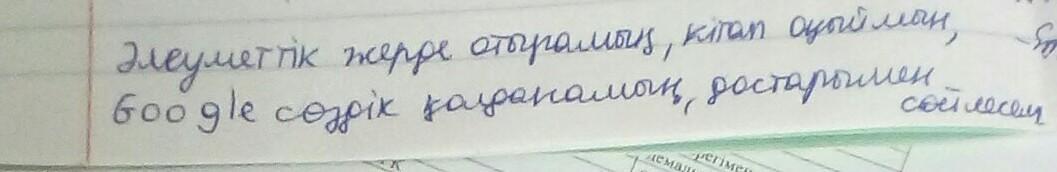 Әлеуметтік жерде отырамың, кітап оқыймын,
Google сөздік қолданамың, достарымен
сөйлесем